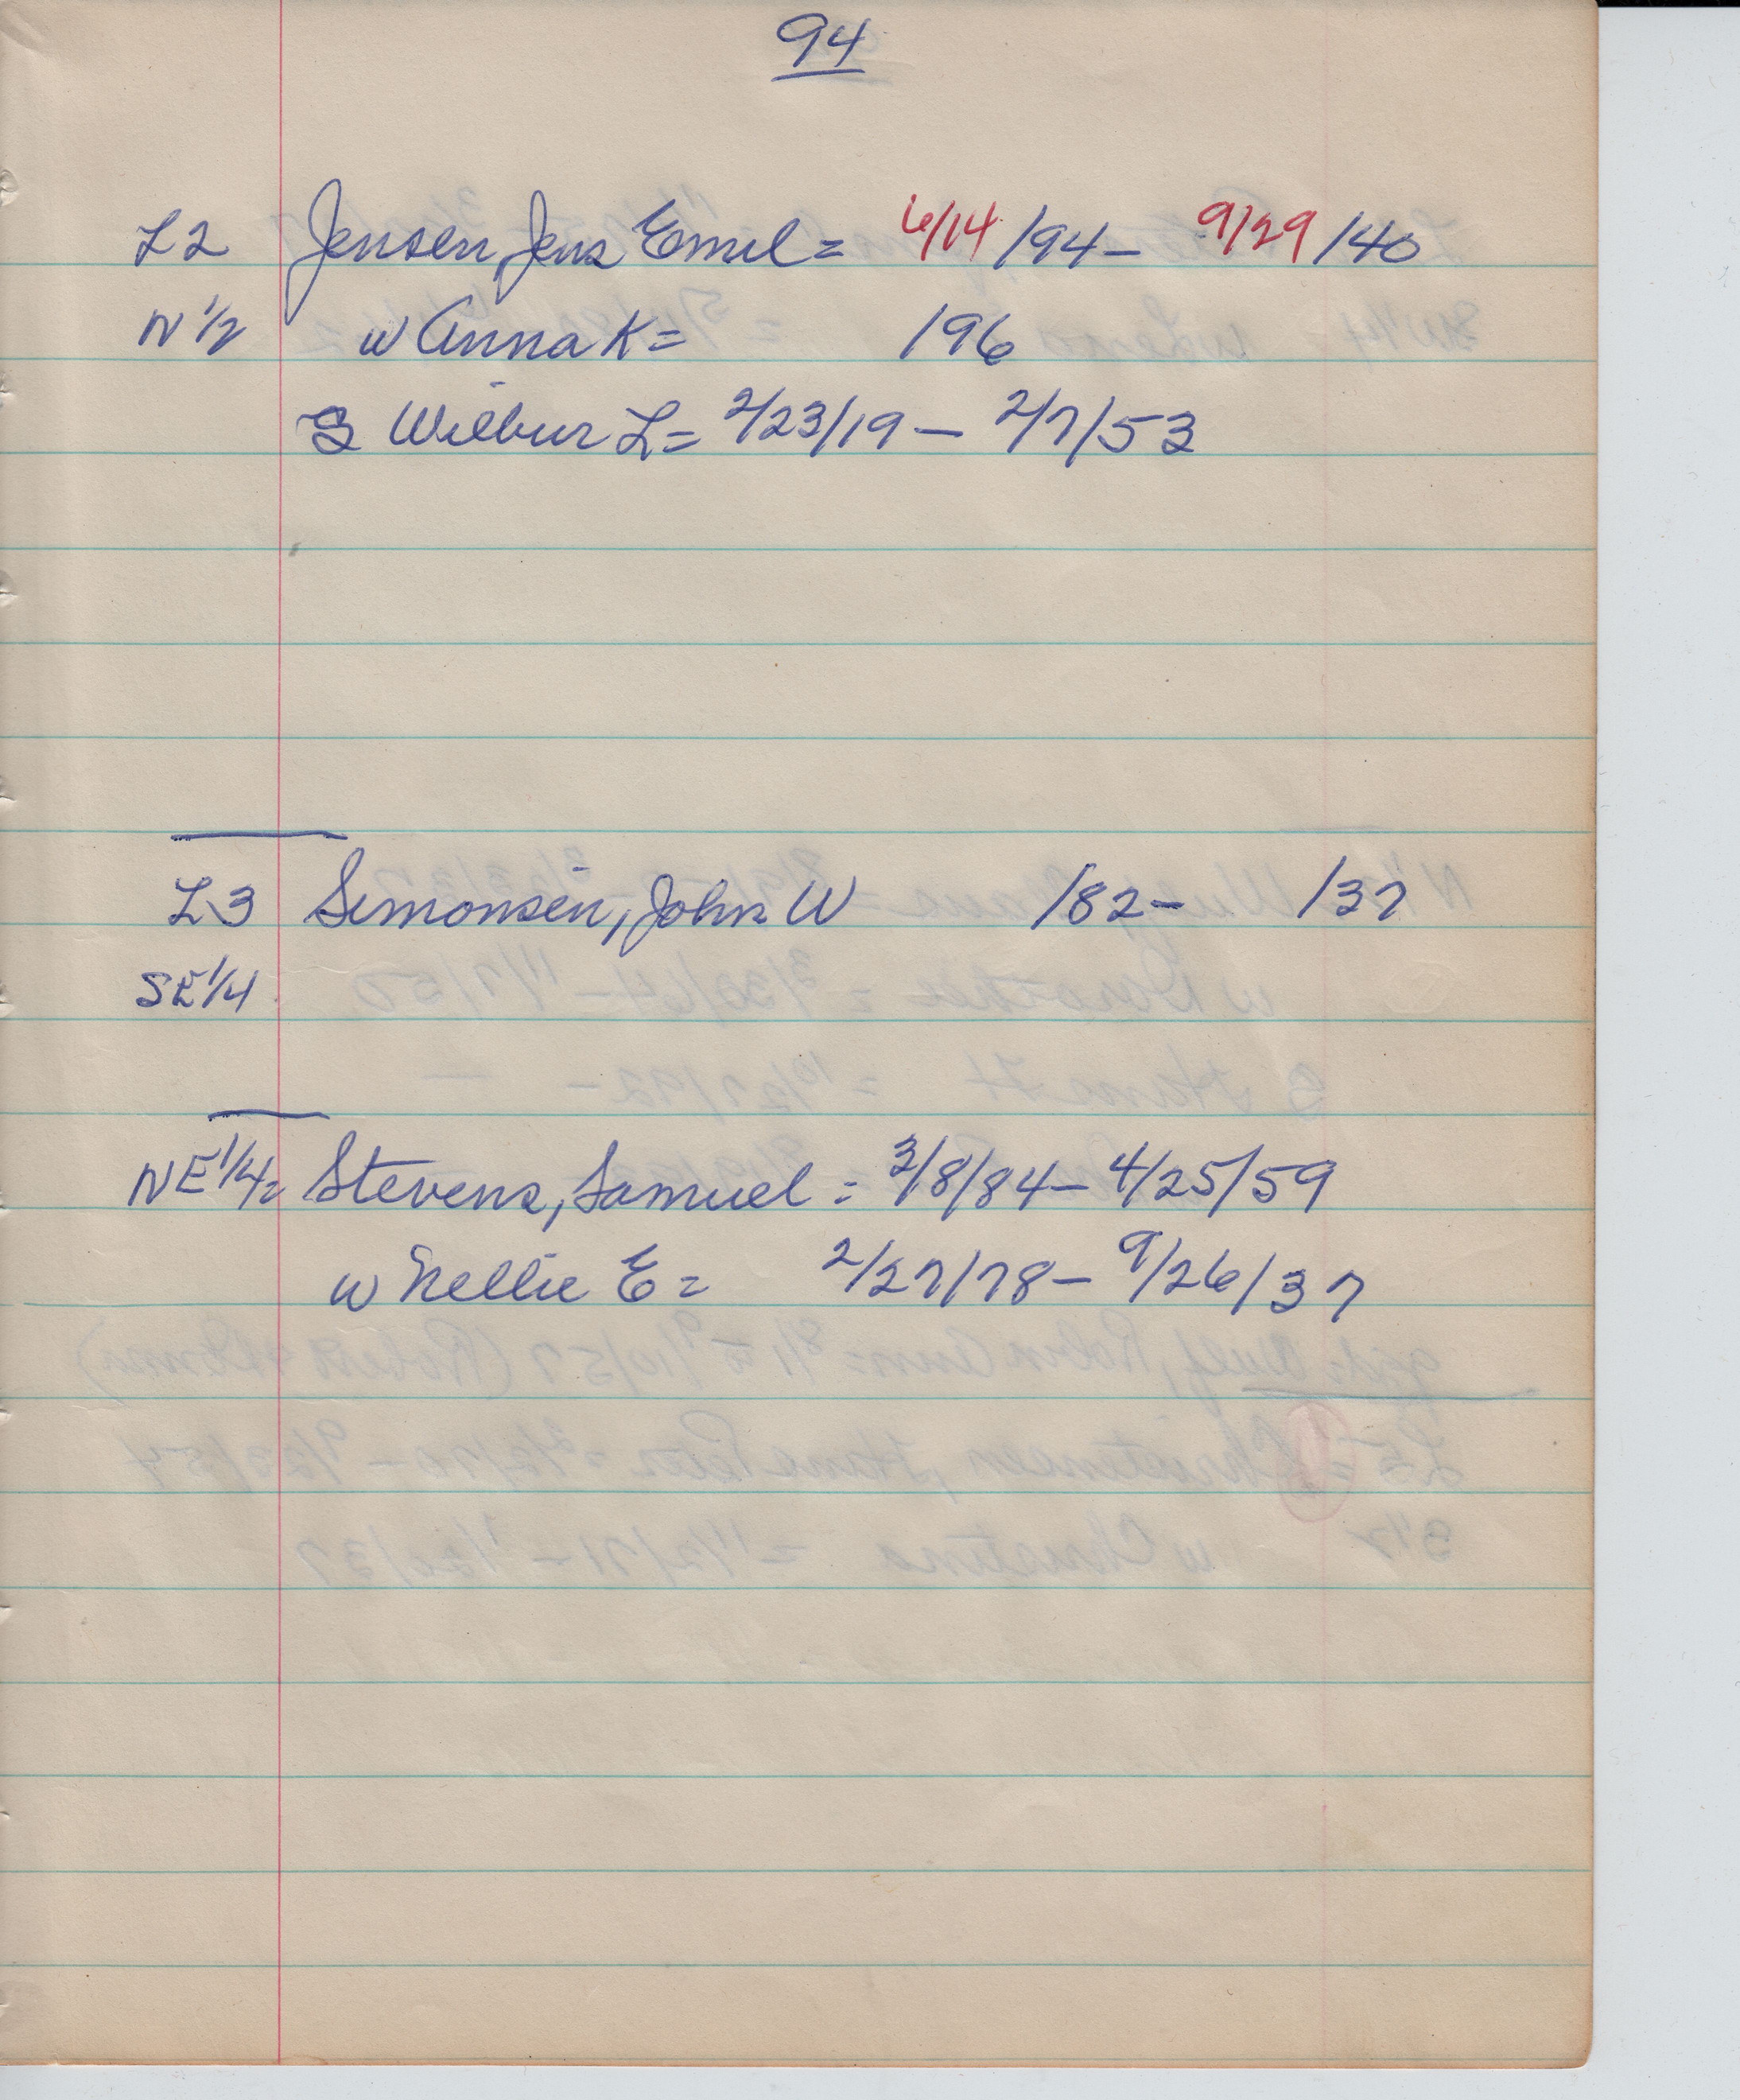 94
L2 Jensen, Jens Emel = 6/14/94 - 9/29/40
N 1/2 w Anna K = /96
S Wilbur L = 2/23/19 - 2/7/53
L3 Simonsen, John W /82 - /37
SE 1/4
NE 1/4 = Stevens, Samuel = 3/8/84 - 4/25/59
w Nellie E = 2/27/78 - 9/26/37